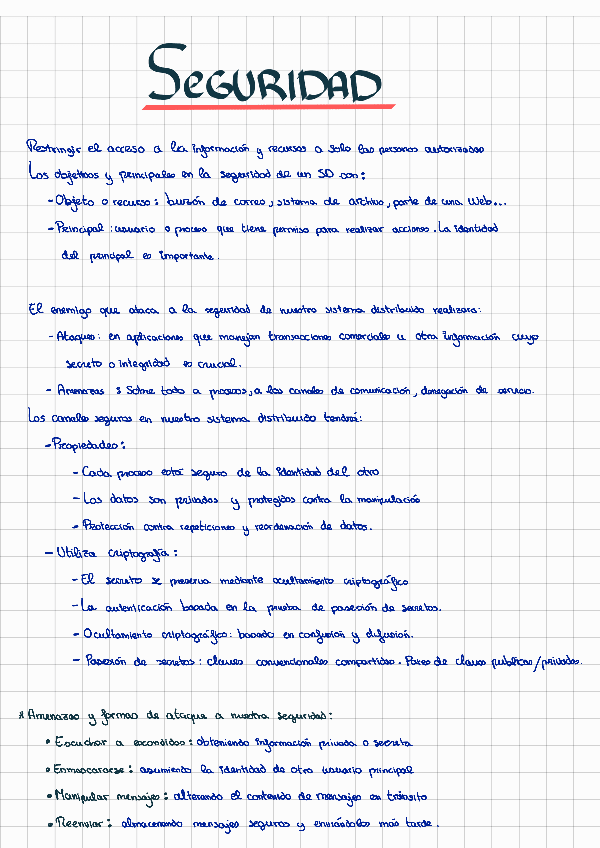 SEGURIDAD
Restringir el acceso a la información y recursos a solo las personas autorizadas
Los objetivos y principales en la seguridad de un SD son:
- Objeto o recurso: buzón de correo, sistema de archivo, parte de una Web...
- Principal: usuario o proceso que tiene permiso para realizar acciones. La identidad
del principal es importante.
El enemigo que ataca a la seguridad de nuestro sistema distribuido realizara:
- Ataques: en aplicaciones que manejan transacciones comerciales u otra información cuyo
secreto o integridad es crucial.
- Amenazas: Sobre todo a procesos, a los canales de comunicación, denegación de servicio.
Los canales seguros en nuestro sistema distribuido tendrá:
- Propiedades:
- Cada proceso está seguro de la identidad del otro
- Los datos son privados y protegidos contra la manipulación
- Protección contra repeticiones y reordenación de datos.
- Utiliza criptografía:
- El secreto se preserva mediante ocultamiento criptográfico
- La autenticación basada en la prueba de posesión de secretos.
- Ocultamiento criptográfico: basado en confusión y difusión.
- Posesión de secretos: claves convencionales compartidas. Pares de claves publicas/privadas.
* Amenazas y formas de ataque a nuestra seguridad:
• Escuchar a escondidas: obteniendo información privada o secreta
• Enmascararse: asumiento la identidad de otro usuario principal
• Manipular mensajes: alterando el contenido de mensajes en tránsito
• Reenviar: almacenando mensajes seguros y enviándolos más tarde.